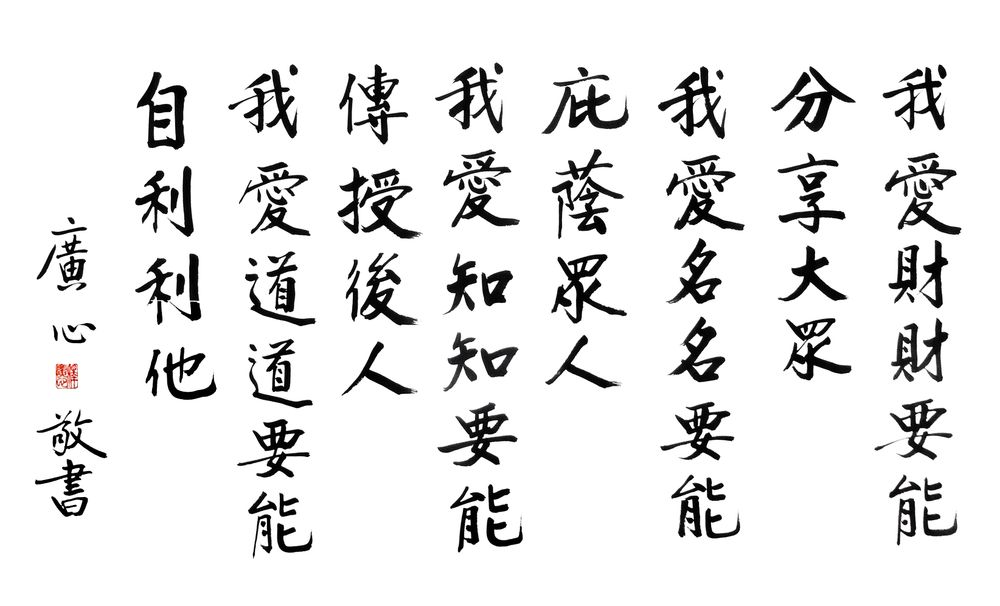 我愛財財要能
分享大眾
我愛名名要能
庇蔭眾人
我愛知知要能
傳授後人
我愛道道要能
自利利他
廣心敬書